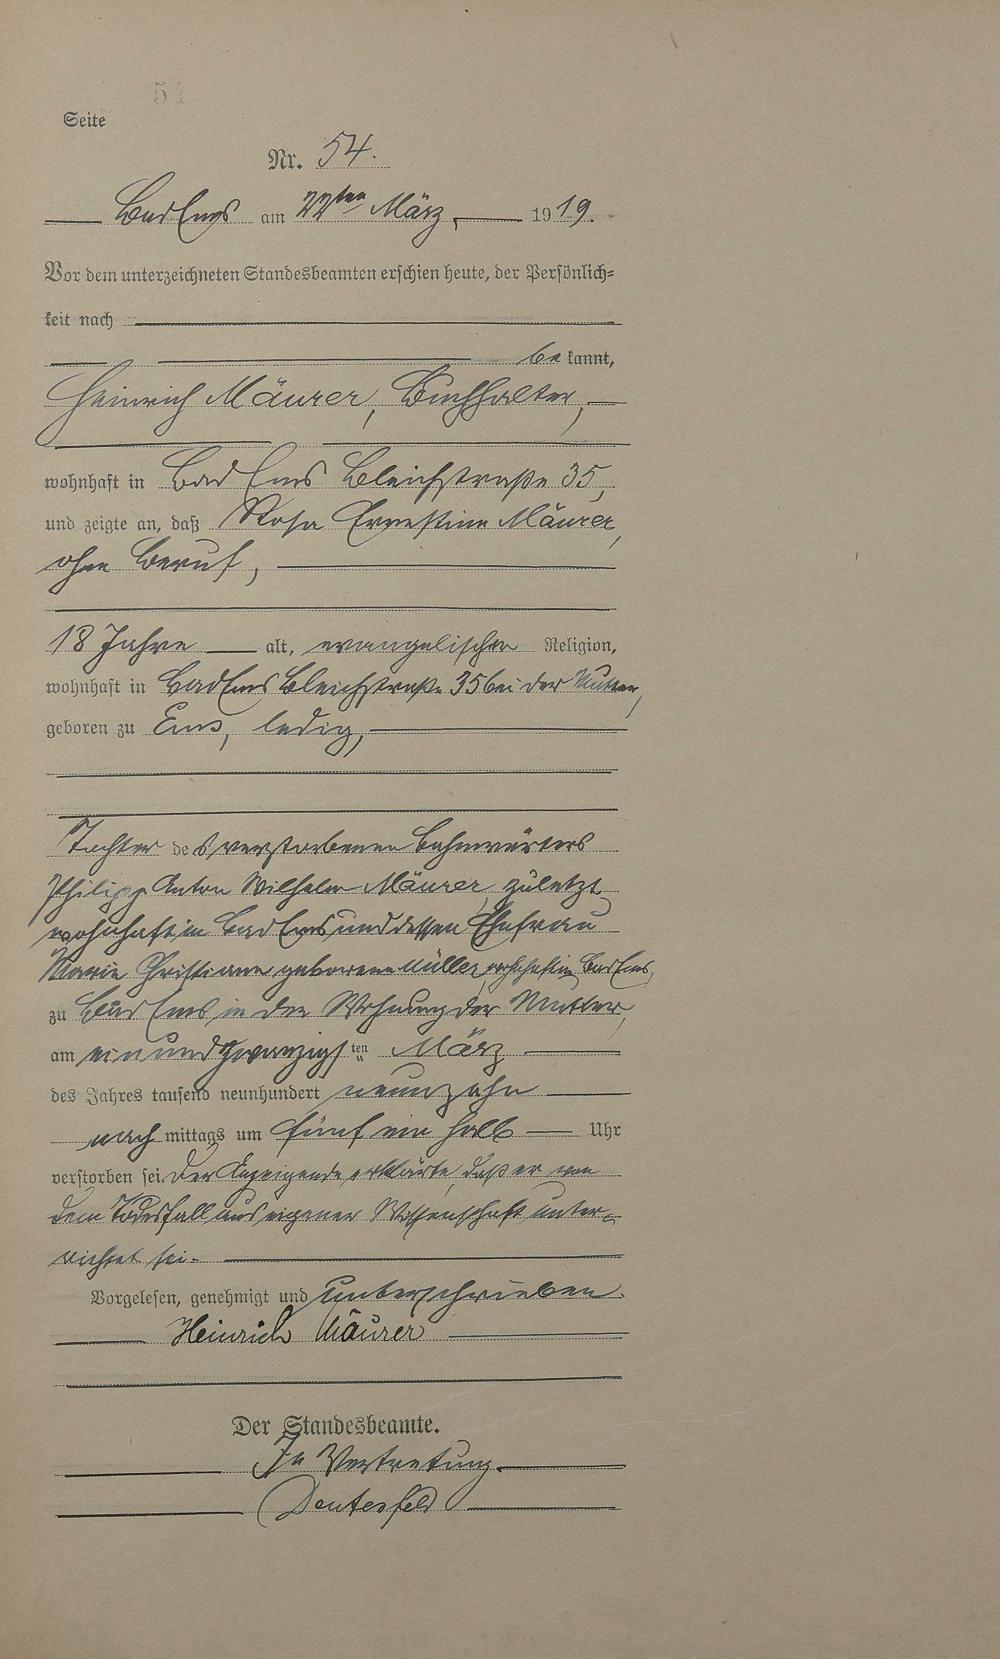 54
Seite
Nr. 54.
Bad Ems am 22ten März 1919.
Vor dem unterzeichneten Standesbeamten erschien heute, der Persönlich-
keit nach
be kannt,
Heinrich Mäurer, Buchhalter,
wohnhaft in Bad Ems Bleichstraße 35,
und zeigte an, daß Rosa Ernestine Mäurer,
ohne Beruf,
18 Jahre alt, evangelischer Religion,
wohnhaft in Bad Ems Bleichstraße 35 bei der Mutter,
geboren zu Ems, ledig,
Tochter des verstorbenen Bahnwärters
Philipp Anton Wilhelm Mäurer, zuletzt
wohnhaft in Bad Ems und dessen Ehefrau
Marie Christiane geborene Müller, wohnhaft in Bad Ems,
zu Bad Ems in der Wohnung der Mutter,
am ein und zwanzigsten März
des Jahres tausend neunhundert neunzehn
nach mittags um fünf ein halb Uhr
verstorben sei. Der Anzeigende erklärte, daß er von
dem Todesfall aus eigener Wissenschaft unter-
richtet sei.
Vorgelesen, genehmigt und unterschrieben.
Heinrich Mäurer
Der Standesbeamte.
In Vertretung.